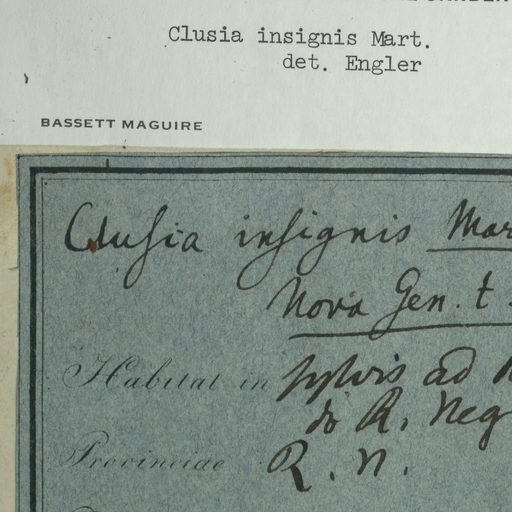 Clusia insignis Mart.
det. Engler
BASSETT MAGUIRE
Clusia insignis Mar
Nova Gen. t
Habitat in sylvis ad
do R. Neg
Provinciae R. n.